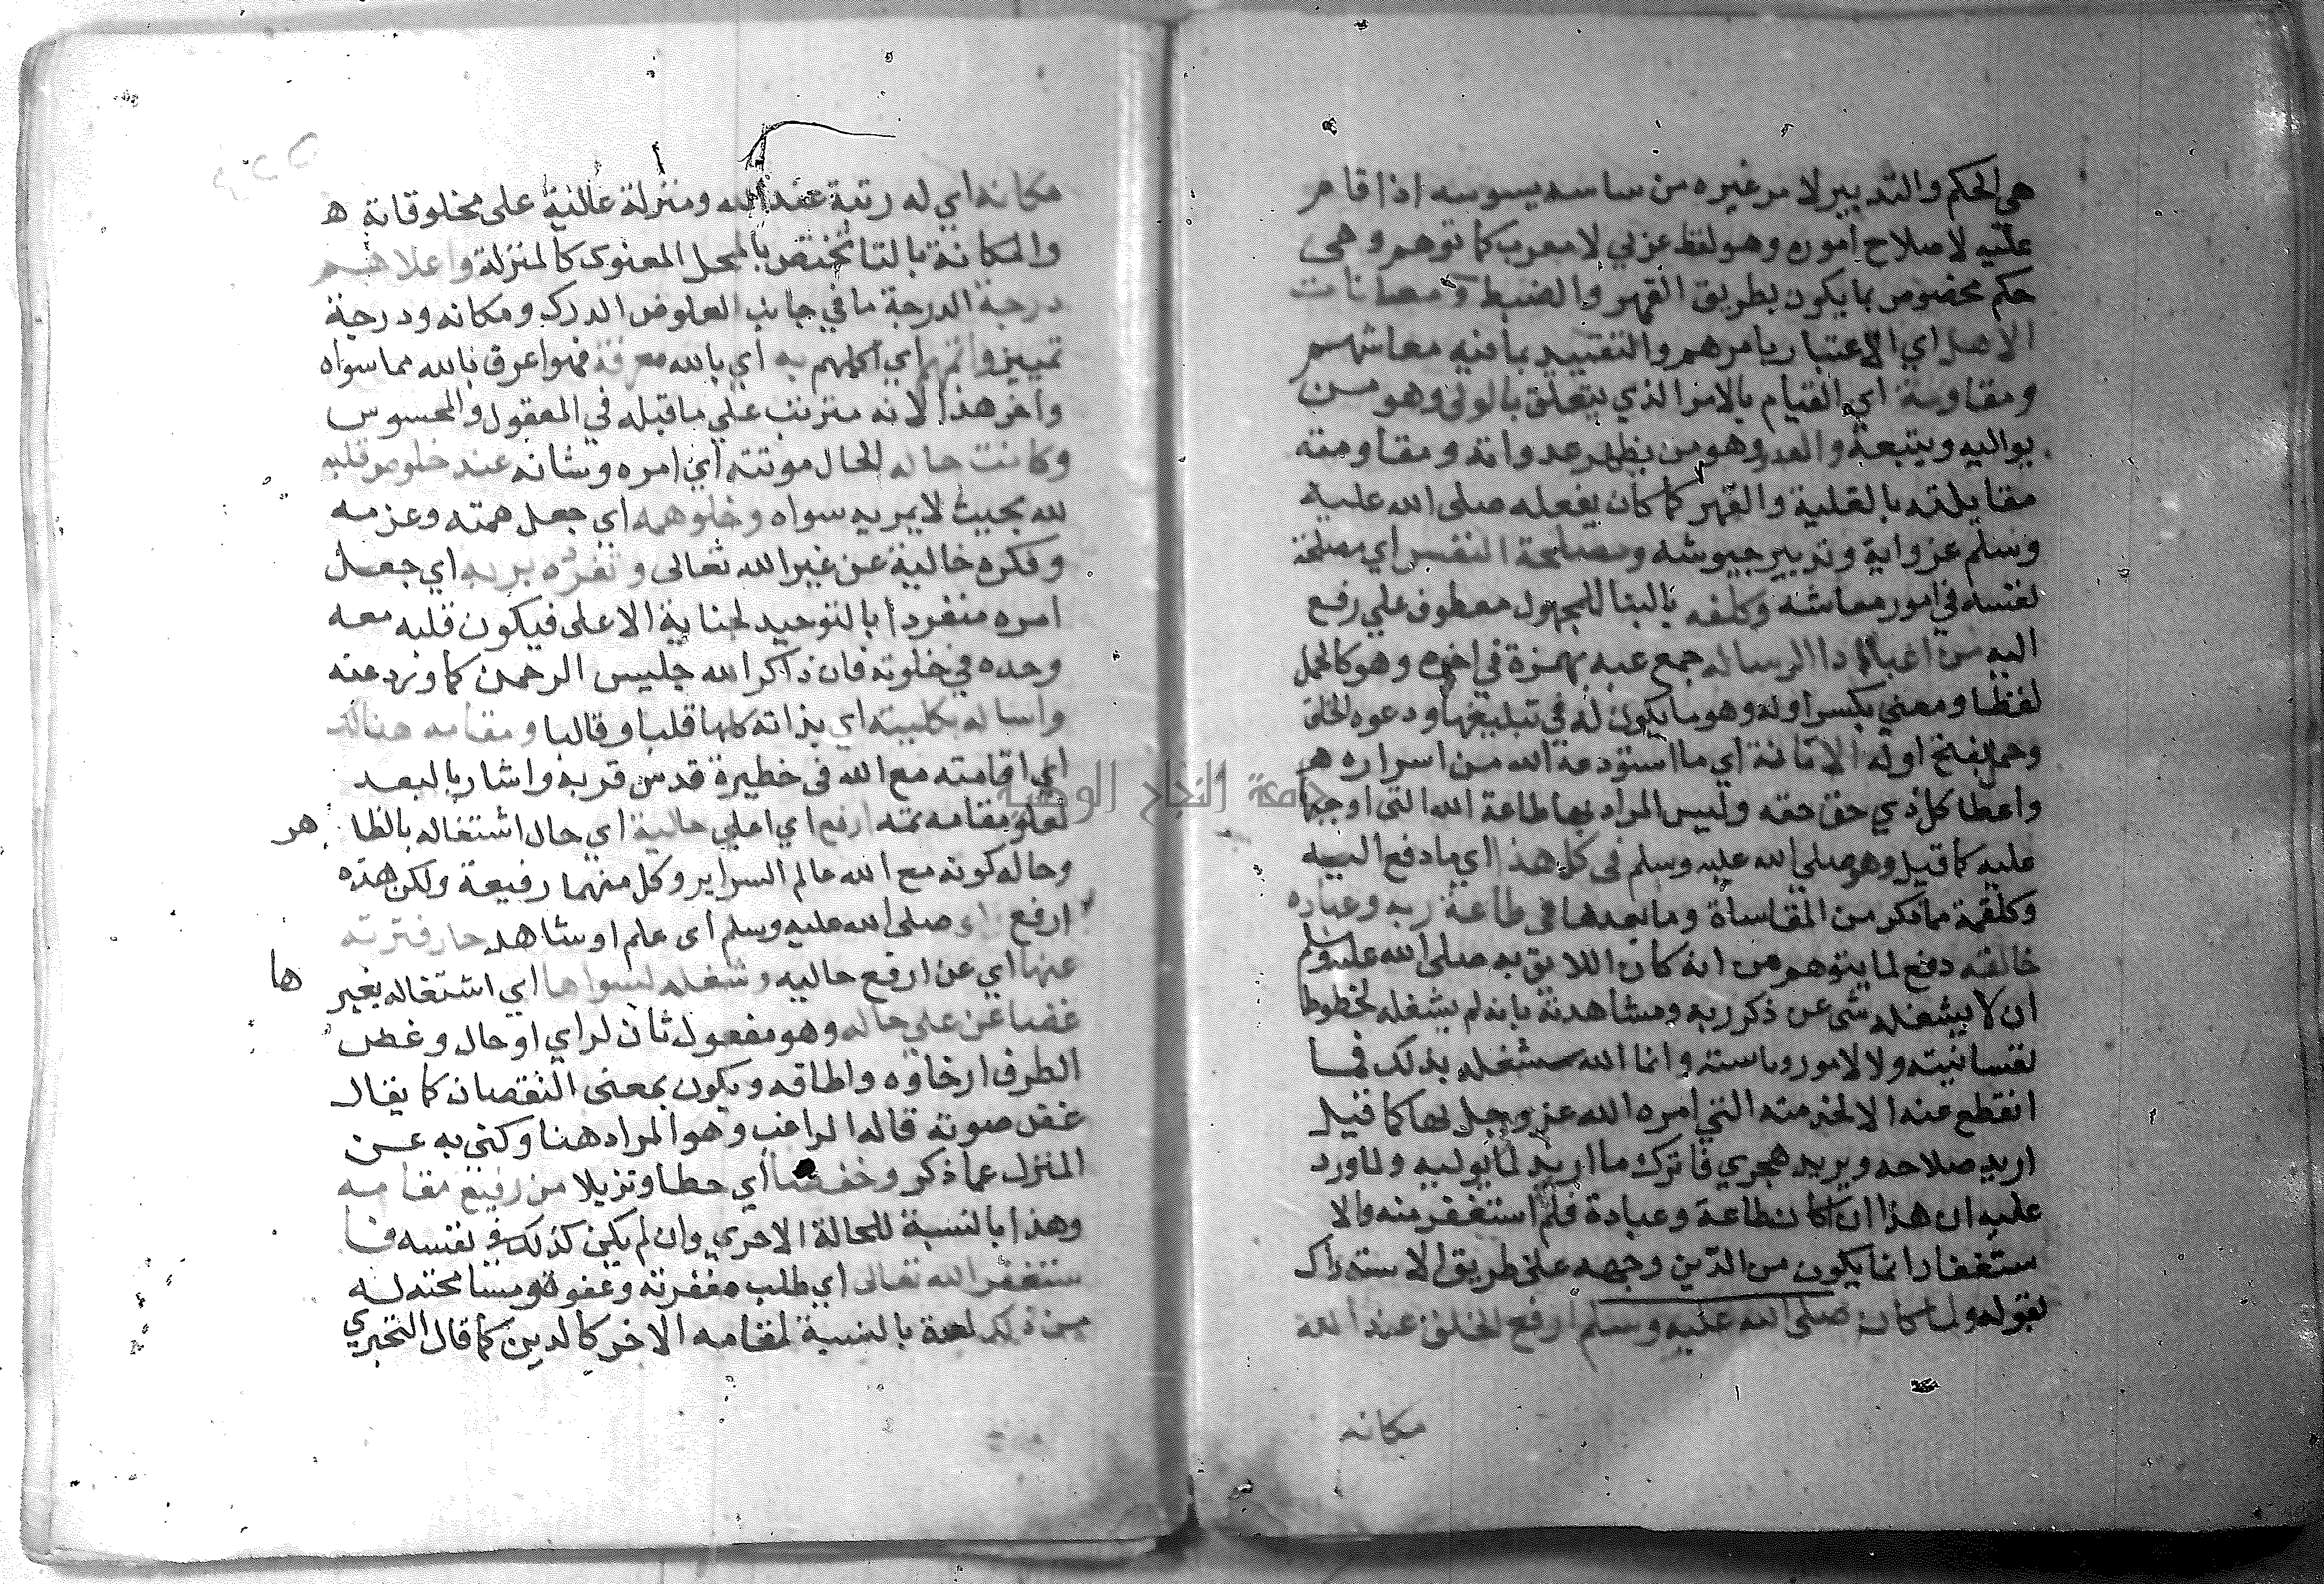 هي الحكم والتدبير لامر غيره من ساسه يسوسه اذا قام
عليه لاصلاح اموره وهو لفظ عربي لا معرب كما توهم وهي
حكم مخصوص بما يكون بطريق القهر والضبط و
الاهل اي الاعتبار بامرهم والتقييد بما فيه معاشهم
ومقاومة اي القيام بالامر الذي يتعلق بالولى وهو من
يواليه ويتبعه والعدو وهو من يظهر عدوانه ومقاومته
مقابلته بالغلبة والقهر كما كان يفعله صلى الله عليه
وسلم في غزواته وتدبير جيوشه ومصلحة النفس اي مصلحة
نفسه في امور معاشه وكلفه بالبنا للمجهول معطوف علي رفع
اليه من اعبا الرساله جمع عبء بهمزة في اخره وهو كالحمل
لفظا ومعني بكسر اوله وهو ما يكون له في تبليغها ودعوه الخلق
وحمل بفتح اوله الامانة اي ما استودعه الله من اسراره
واعطا كل ذي حق حقه وليس المراد بها طاعة الله التي اوجبها
عليه كما قيل وهو صلي الله عليه وسلم في كل هذا اي ما دفع اليه
وكلفه مما ذكر من المقاساة وما بعدها في طاعة ربه وعباده
خالقه دفع لما يتوهم من انه كان اللايق به صلى الله عليه وسلم
ان لا يشغله شي عن ذكر ربه ومشاهدته بانه لم يشغله لحظوظ
نفسانيته ولا لامور وانما الله شغله بذلك فما
انقطع عنه الا لخدمته التي امره الله عز وجل بها كما قيل
اريد صلاحه ويريد هجري فاترك ما اريد لما يريد ولما ورد
عليه ان هذا ان كان طاعة وعبادة فلم استغفر منه والا
ستغفار انما يكون من الذين وجهه على طريق الاستدراك
لقوله ولما كان صلى الله عليه وسلم ارفع الخلق عند الله
مكانه
مكانه اي له رتبة عند الله ومنزلة عالية على مخلوقاته ه
والمكانة بالتا تختص بالمحل المعنوي كالمنزلة واعلاهم
درجة الدرجة ما في جانب العلو ضد الدرك ومكانه ودرجة
تمييز واتمهم اي اكملهم به اي بالله معرفة فهو اعرف بالله مما سواه
واخر هذا لانه مترتب علي ما قبله في المعقول والمحسوس
وكانت حاله الحال مونثه اي امره وشانه عند خلوص قلبه
لله بحيث لا يريد سواه وخلو همه اي جعل همته وعزمه
وفكره خالية عن غير الله تعالى وتفرده بربه اي جعل
امره منفردا بالتوحيد لجنابه الاعلى فيكون قلبه معه
وحده في خلوته فان ذاكر الله جليس الرحمن كما ورد عنه
واقباله بكليته اي بذاته كلها قلبا وقالبا ومقامه هنالك
اي اقامته مع الله في حظيرة قدس قربه واشار بالبعد
لعلو مقامه ثمه ارفع اي اعلي حاليه اي حال اشتغاله بالظا هر
وحاله كونه مع الله عالم السراير وكل منهما رفيعة ولكن هذه
ارفع راي صلى الله عليه وسلم اى علم او شاهد حال فترته
عنها اي عن ارفع حاليه وشغله بسواها اي اشتغاله بغير ها
غضا عن علي حاله وهو مفعول ثان لراي او حال وغض
الطرف ارخاوه واطراقه ويكون بمعنى النقصان كما يقال
غض صوته قاله الراغب وهو المراد هنا وكني به عن
المنزل عما ذكر وخفضا اي حطا وتنزيلا من رفيع مقامه
وهذا بالنسبة للحالة الاخري وان لم يكن كذلك في نفسه فا
ستغفر الله تعالى اي طلب مغفرته وعفوه ومسامحته له
من ذلك لعة بالنسبة لمقامه الاخر كالدين كما قال التجبري
جامعة النجاح الوطنية